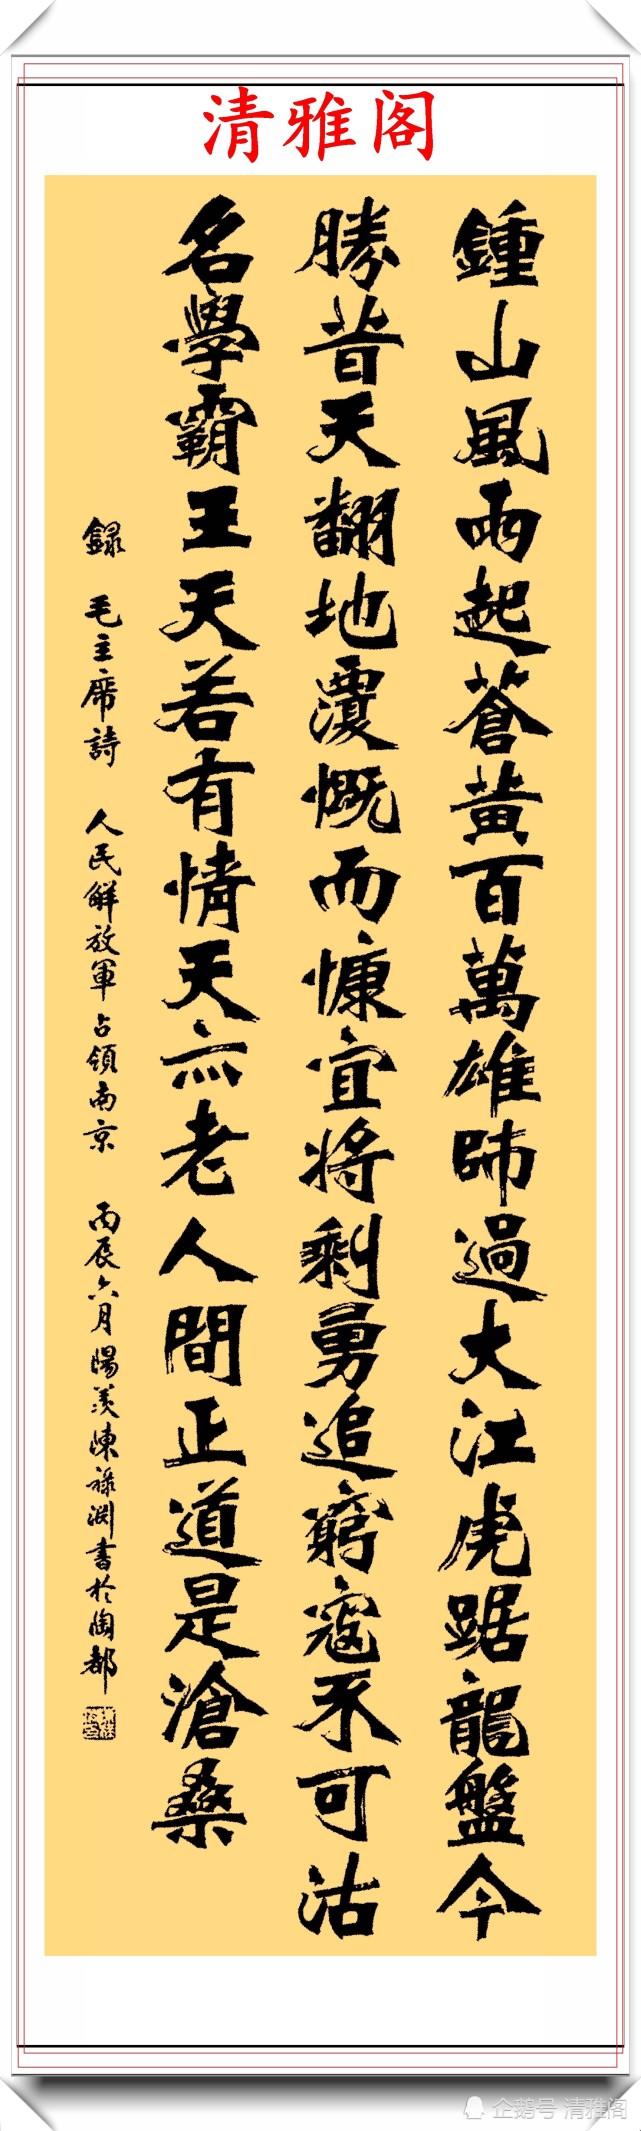 清雅阁
鍾山風雨起蒼黄百萬雄師過大江虎踞龍盤今
勝昔天翻地覆慨而慷宜将剩勇追窮寇不可沽
名學霸王天若有情天亦老人間正道是滄桑
録 毛主席詩 人民解放軍占領南京 丙辰六月陽羨陳禄渊書於陶都
企鹅号 清雅阁